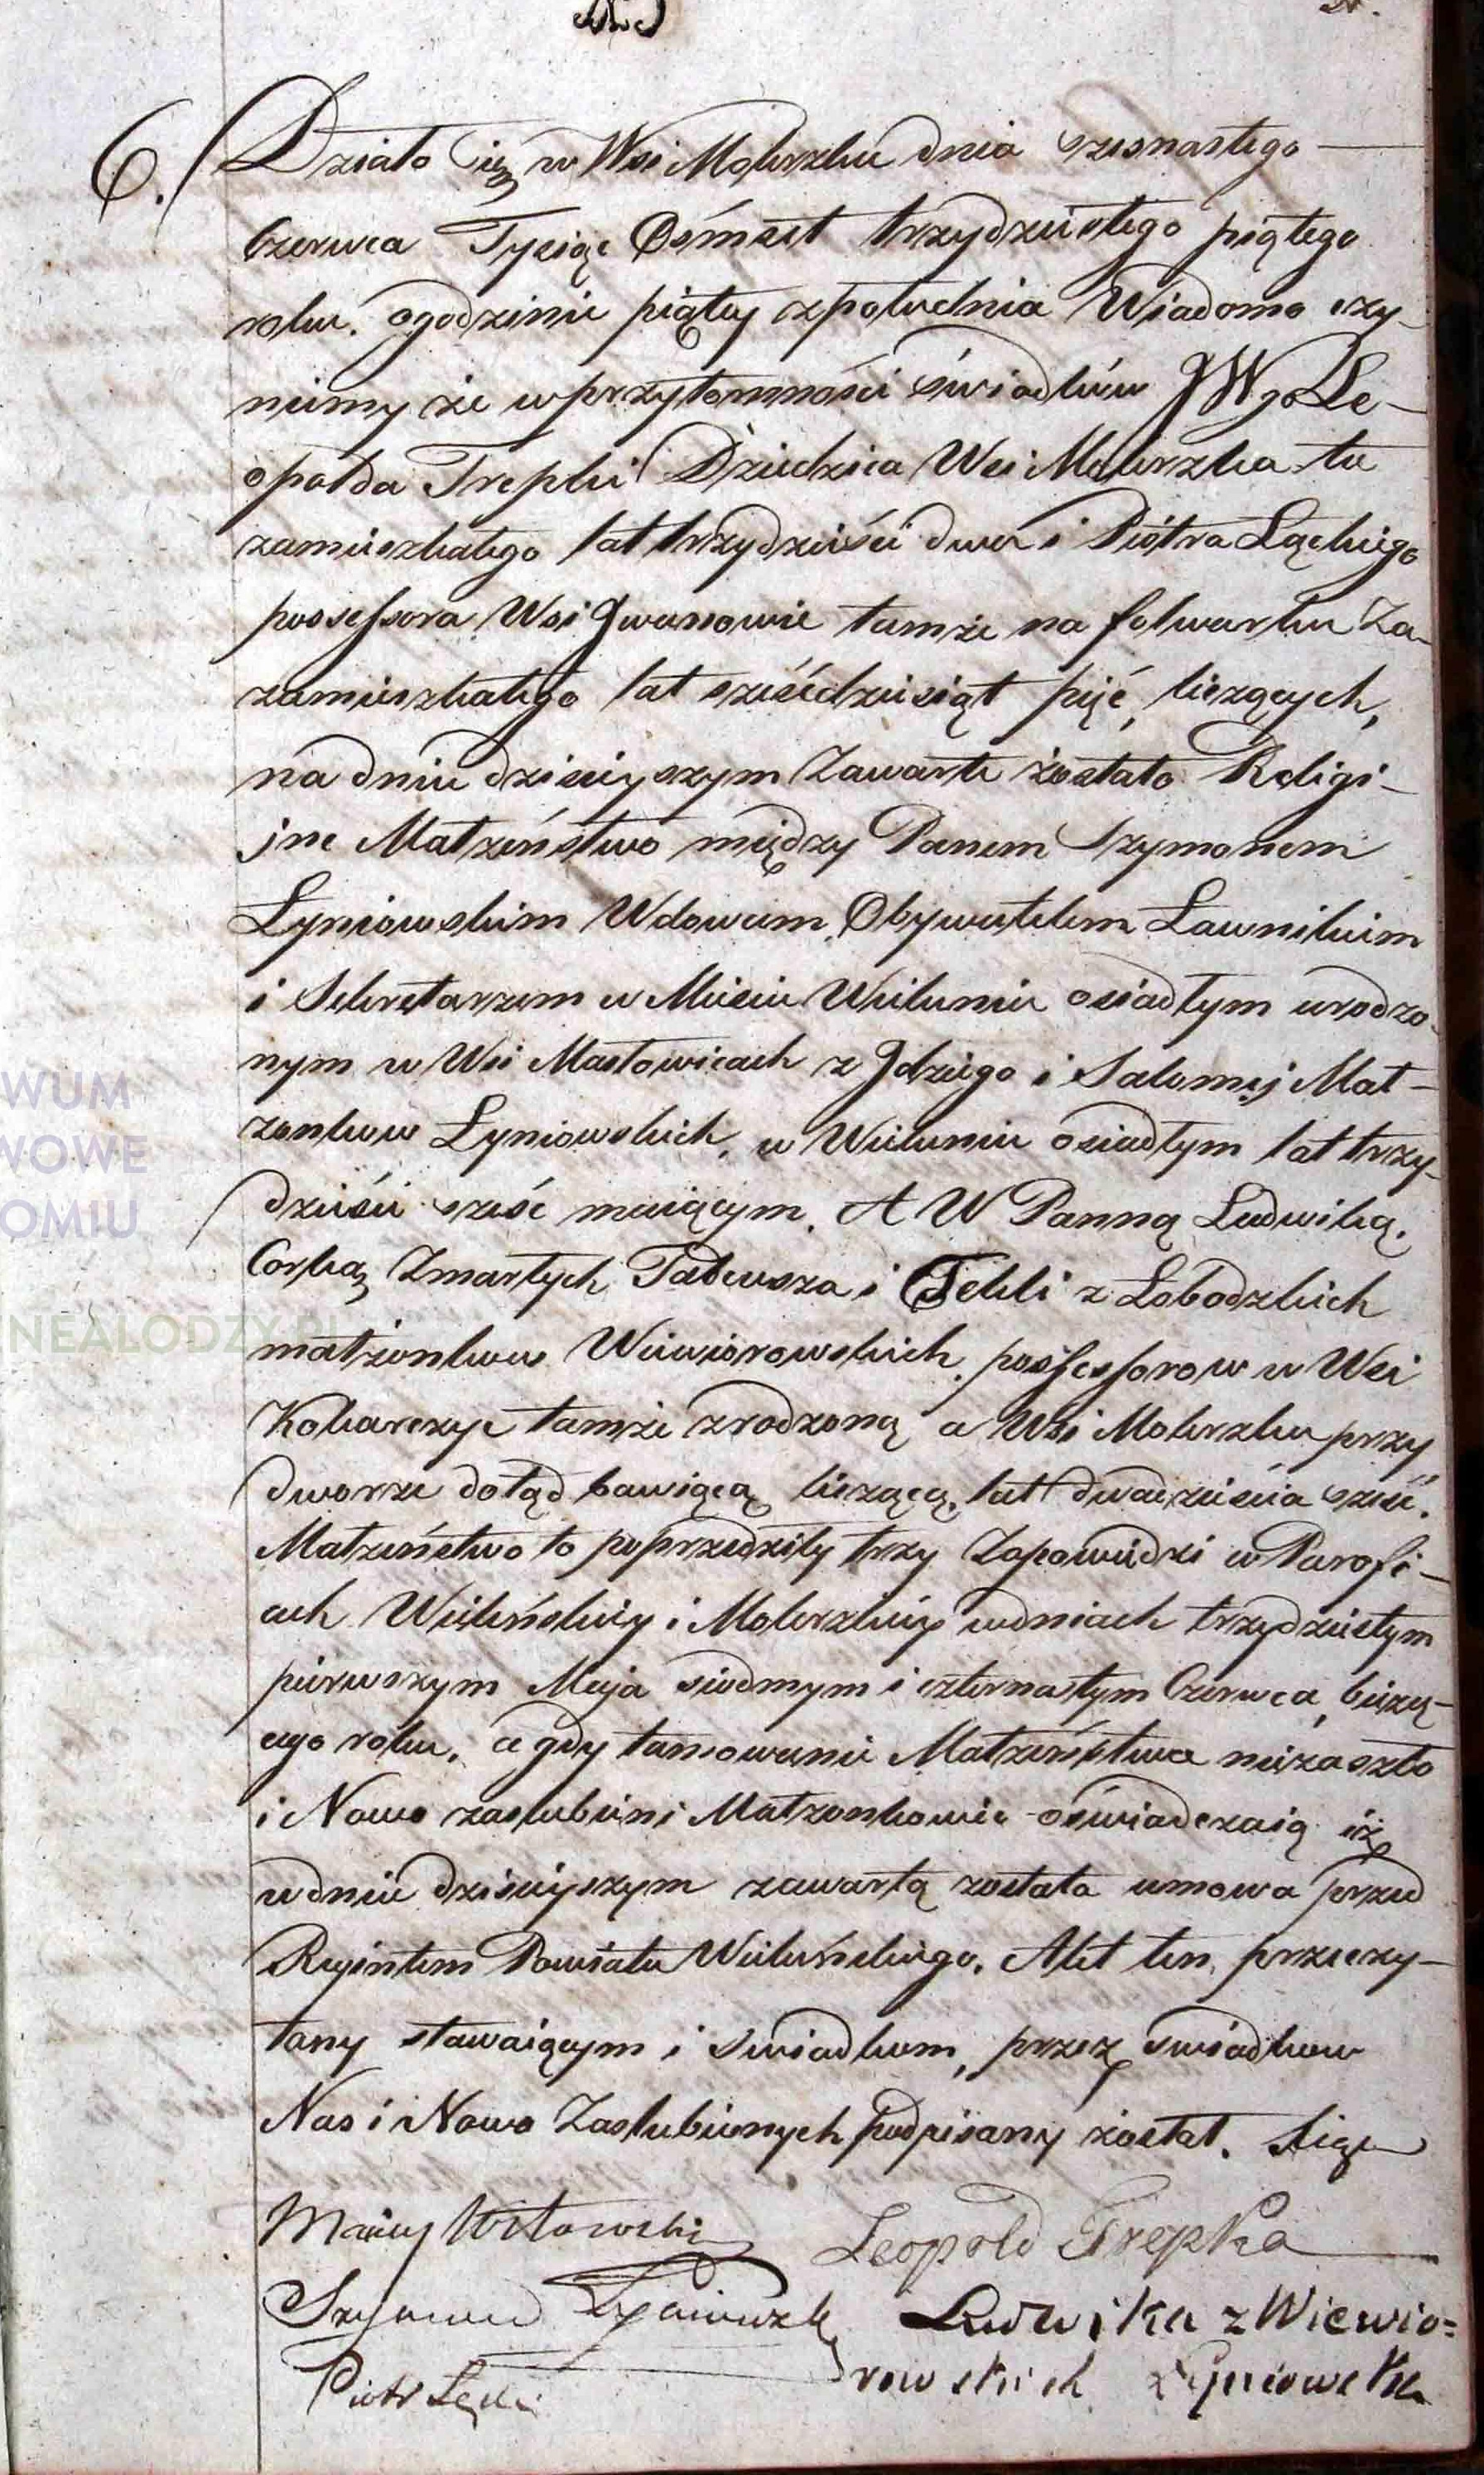 6. Działo się w Wsi Mokrzku dnia szesnastego —
Czerwca Tysiąc Ośmset trzydziestego piątego
roku. ogodzinie piątey zpołudnia Wiadomo czy-
niemy że wprzytomności świadków JWgo Le-
opolda Trepki Dziedzica Wsi Mokrzka tu
zamieszkałego lat trzydzieści dwa i Piotra Łąckiego
possessora Wsi Jwanowie tamże na folwarku Za-
zamieszkałego lat sześćdziesiąt pięć, liczących,
na dniu dzisieyszym Zawarte zostało Religi-
jne Małżeństwo między Panem Szymonem
Łyniowskim Wdowcem, Obywatelem Ławnikiem
i Sekretarzem w Mieście Wieluniu osiadłym urodzo-
nym w Wsi Masłowicach z Jdziego i Salomej Mał-
żonkow Łyniowskich, w Wieluniu osiadłym lat trzy-
dzieści sześć maiącym. A W Panną Ludwiką.
Corką Zmarłych Tadeusza i Tekli z Łobodzkich
małżonkow Wiewiorowskich, possessorow w Wsi
Kokarczyc tamże zrodzoną a Wsi Mokrzku przy
dworze dotąd bawiącą liczącą, lat dwadzieścia sześć.
Małżeństwo to poprzedziły trzy Zapowiedzi w Parafi-
ach Wieluńskiey i Mokrzkiey wdniach trzydziestym
pierwszym Maja siodmym i czternastym Czerwca, bieżą-
cego roku, a gdy tamowanie Małżeństwa niezaszło
i Nowo zaslubieni Małżonkowie oświadczaią iż
wdniu dzisieyszym zawartą została umowa przed
Rejentem Powiatu Wieluńskiego. Akt ten, przeczy-
tany stawaiącym i swiadkom, przez swiadkow
Nas i Nowo Zaslubionych podpisany został.
Leopold Trepka
Szymon Łyniewski
Ludwika z Wiewio=
Piotr Łącki
rowskich Łyniowska
WUM
WOWE
OMIU
NEALODZY.PL